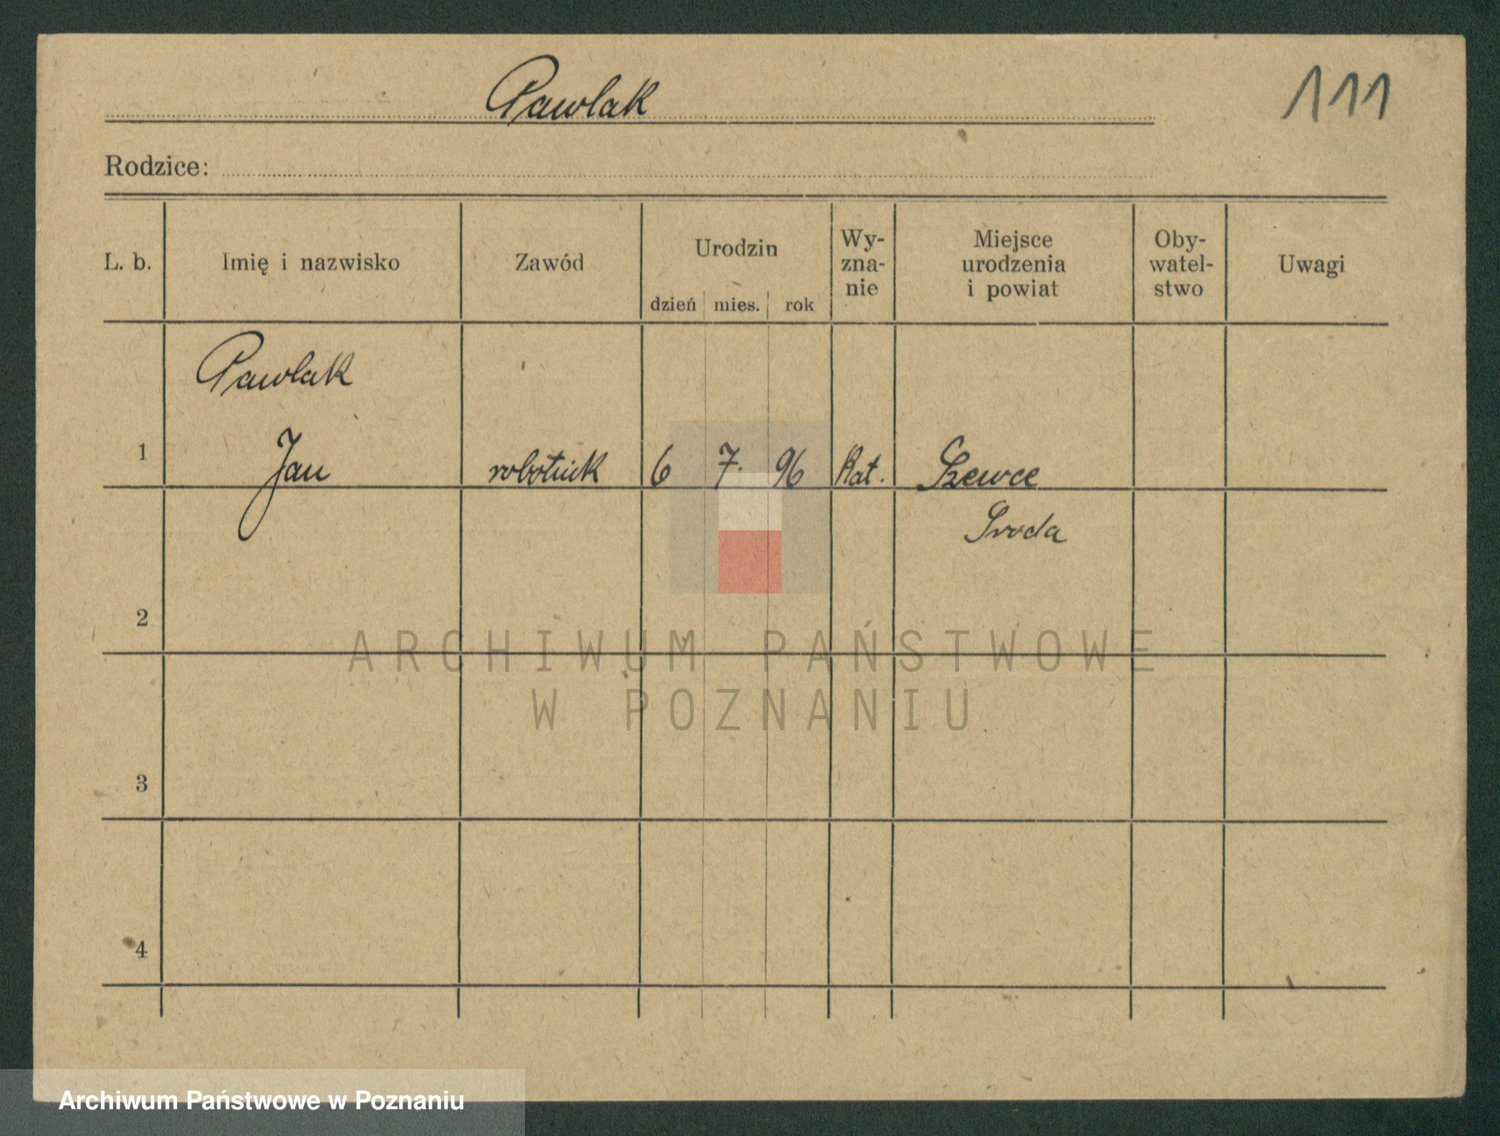 Pawlak
111
Rodzice:
L. b.
Imię i nazwisko
Zawód
Urodzin
dzień mies. rok
Wy-
zna-
nie
Miejsce
urodzenia
i powiat
Oby-
watel-
stwo
Uwagi
Pawlak
1 Jan robotnik 6 7. 96 Kat. Szewce
Sroda
2
ARCHIWUM PAŃSTWOWE
W POZNANIU
3
4
Archiwum Państwowe w Poznaniu